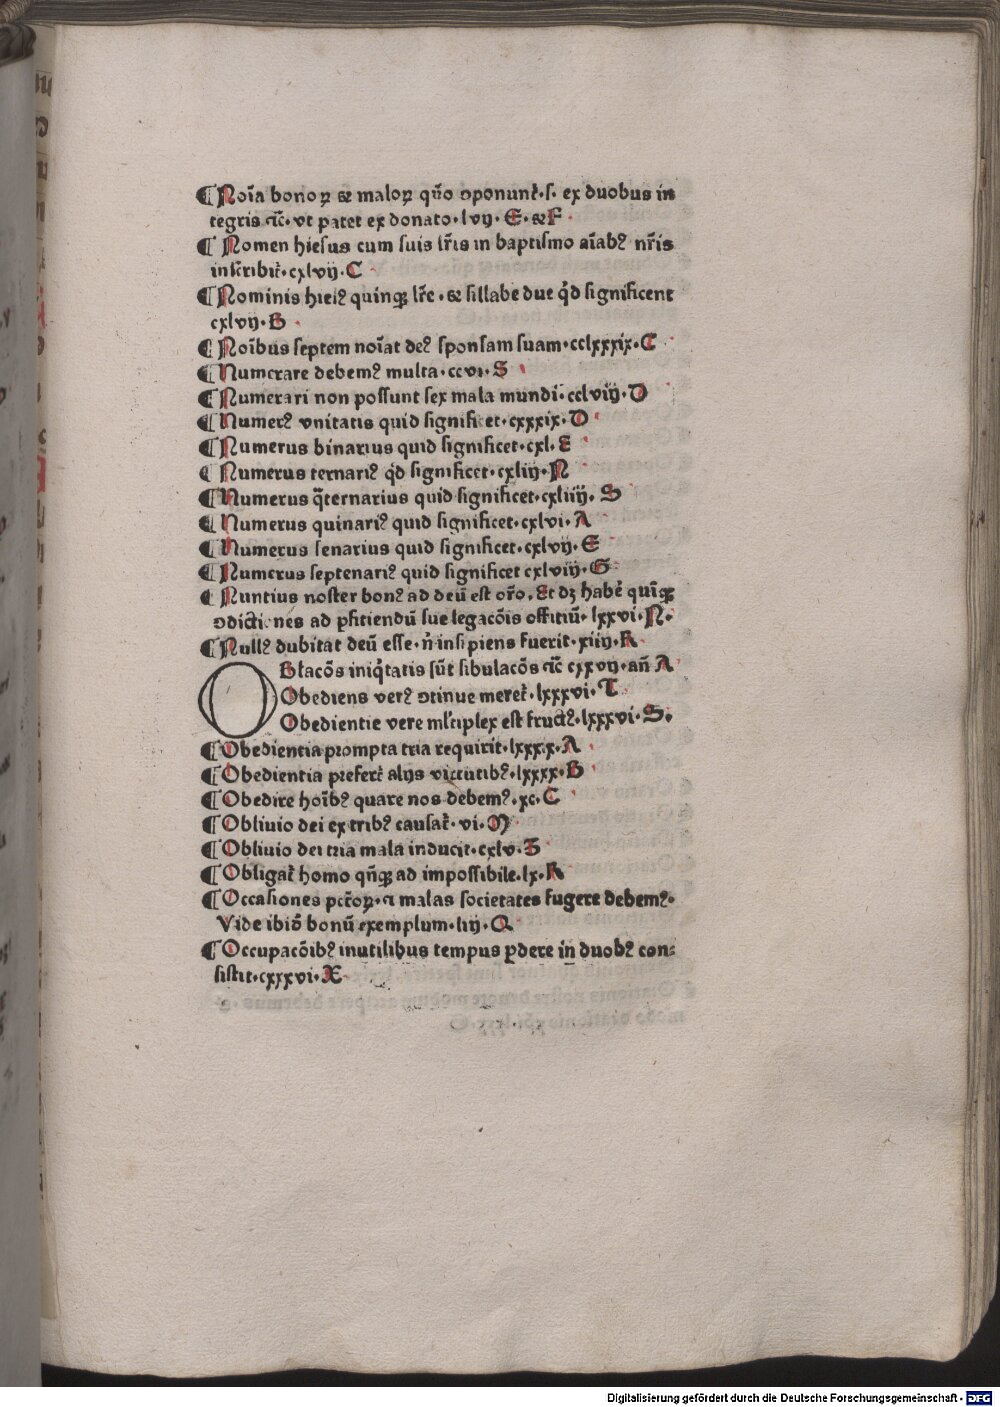 ¶ Noīa bonoꝝ ⁊ maloꝝ qūo ꝯponunt᷑·ſ· ex duobus in
tegris ⁊c̄· vt patet ex donato·lvij· E·⁊F·
¶ Nomen hieſus cum ſuis lr̄is in baptiſmo aīabꝰ nr̄is
inſcribit᷑·cxlvij·C
¶ Nominis hieſꝰ quinqꝫ lr̄e·⁊ ſillabe due qͥd ſignificent
cxlvij·B
¶ Noībus ſeptem noīat deꝰ ſponſam ſuam·cclxxxix·C
¶ Numerare debemꝰ multa·ccvi·S
¶ Numerari non poſſunt ſex mala mundi·cclviij·D
¶ Numerꝰ vnitatis quid ſignificet·cxxxix·D
¶ Numerus binarius quid ſignificet·cxl·E
¶ Numerus ternariꝰ qͥd ſignificet·cxliij·N
¶ Numerus qͣternarius quid ſignificet·cxliiij·S
¶ Numerus quinariꝰ quid ſignificet·cxlvi·A
¶ Numerus ſenarius quid ſignificet·cxlvij·E
¶ Numerus ſeptenariꝰ quid ſignificet cxlviij·G
¶ Nuntius noſter bonꝰ ad deū eſt or̄o. Et dꝫ habe᷑ quīqꝫ
ꝯdictiones ad ꝑfitiendū ſue legacōis offitiū·lxxvi·N·
¶ Nullꝰ dubitat deū eſſe·n̄ inſipiens fuerit·xiiij·K·
OBlacōs iniqͥtatis ſūt ſibulacōs ⁊c̄ cxxvij·an̄ A
Obediens verꝰ ꝯtinue meret᷑·lxxxvi·T
Obedientie vere ml̄tiplex eſt fructꝰ·lxxxvi·S·
¶ Obedientia prompta tria requirit·lxxxx·A
¶ Obedientia prefert᷑ alijs virtutibꝰ·lxxxx·B
¶ Obedire hoībꝰ quare nos debemꝰ·xc·C
¶ Obliuio dei ex tribꝰ cauſat᷑·vi·M
¶ Obliuio dei tria mala inducit·cxlv·
¶ Obligat᷑ homo qn̄qꝫ ad impoſſibile·lx·K
¶ Occaſiones pctōꝝ·⁊ malas ſocietates fugere debemꝰ·
Vide ibiđ bonū exemplum·liij·Q
¶ Occupacōibꝰ inutilibus tempus ꝑdere in duobꝰ con⸗
ſiſtit·cxxxvi·X
Digitalisierung gefördert durch die Deutsche Forschungsgemeinschaft - DFG